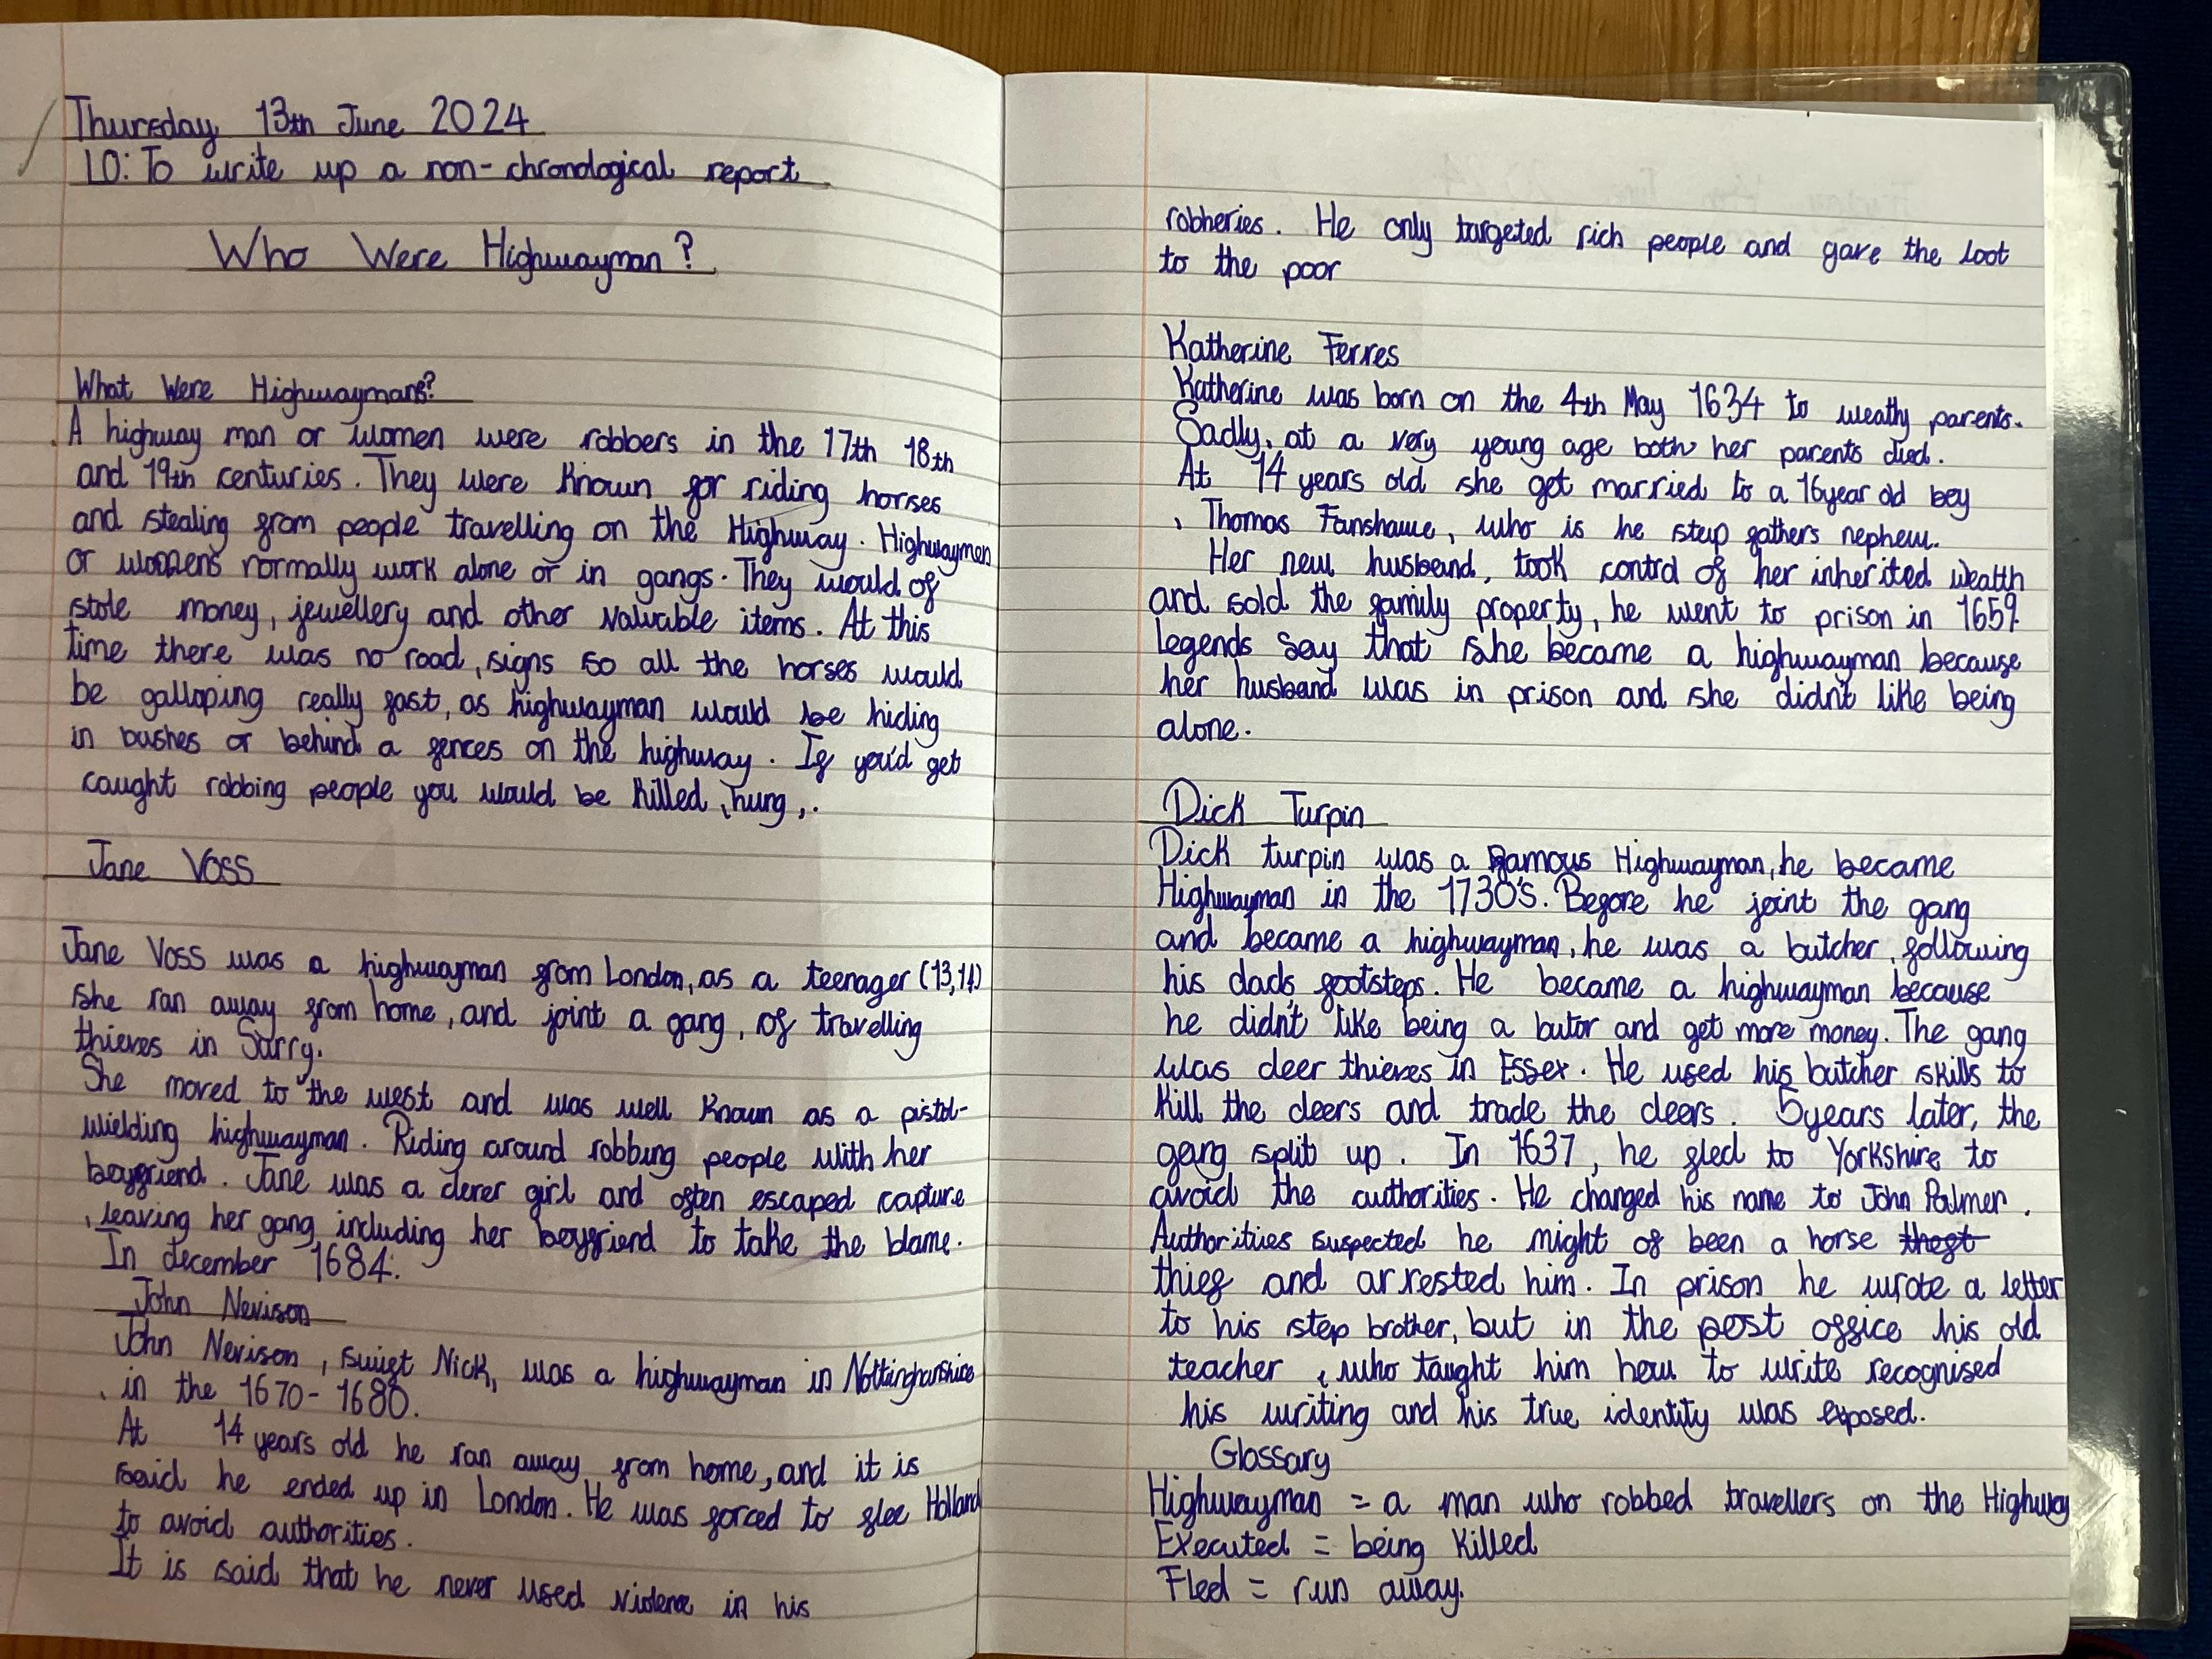 Thursday 13th June 2024
LO: To write up a non-chronological report
Who Were Highwayman?
What Were Highwaymans?
A highway man or women were robbers in the 17th 18th
and 19th centuries. They were known for riding horses
and stealing from people travelling on the Highway. Highwaymen
or womens normally work alone or in gangs. They would of
stole money, jewellery and other valuable items. At this
time there was no road, signs so all the horses would
be galloping really fast, as highwayman would be hiding
in bushes or behind a fences on the highway. If you'd get
caught robbing people you would be killed, hung,.
Jane Voss
Jane Voss was a highwayman from London, as a teenager (13,14)
she ran away from home, and joint a gang, of travelling
thieves in Surry.
She moved to the west and was well known as a pistol-
wielding highwayman. Riding around robbing people with her
boyfriend. Jane was a clever girl and often escaped capture
, leaving her gang including her boyfriend to take the blame.
In december 1684.
John Nevison
John Nevison, swift Nick, was a highwayman in Nottinghamshire
, in the 1670-1680.
At 14 years old he ran away from home, and it is
said he ended up in London. He was forced to flee Holland
to avoid authorities.
It is said that he never used violence in his
robberies. He only targeted rich people and gave the loot
to the poor
Katherine Ferres
Katherine was born on the 4th May 1634 to weathy parents.
Sadly, at a very young age both her parents died.
At 14 years old she get married to a 16year old boy
, Thomas Fanshawe, who is he step fathers nephew.
Her new husband, took control of her inherited wealth
and sold the family property, he went to prison in 1659.
legends say that she became a highwayman because
her husband was in prison and she didn't like being
alone.
Dick Turpin
Dick turpin was a famous Highwayman, he became
Highwayman in the 1730's. Before he joint the gang
and became a highwayman, he was a butcher, following
his dads, footsteps. He became a highwayman because
he didn't like being a butor and get more money. The gang
was deer thieves in Essex. He used his butcher skills to
kill the deers and trade the deers. 5years later, the
gang split up. In 1637, he fled to Yorkshire to
avoid the authorities. He changed his name to John Palmer.
Authorities suspected he might of been a horse theft
thief and arrested him. In prison he wrote a letter
to his step brother, but in the post office his old
teacher, who taught him how to write recognised
his writing and his true identity was exposed.
Glossary
Highwayman = a man who robbed travellers on the Highway
Executed = being killed
Fled = run away.